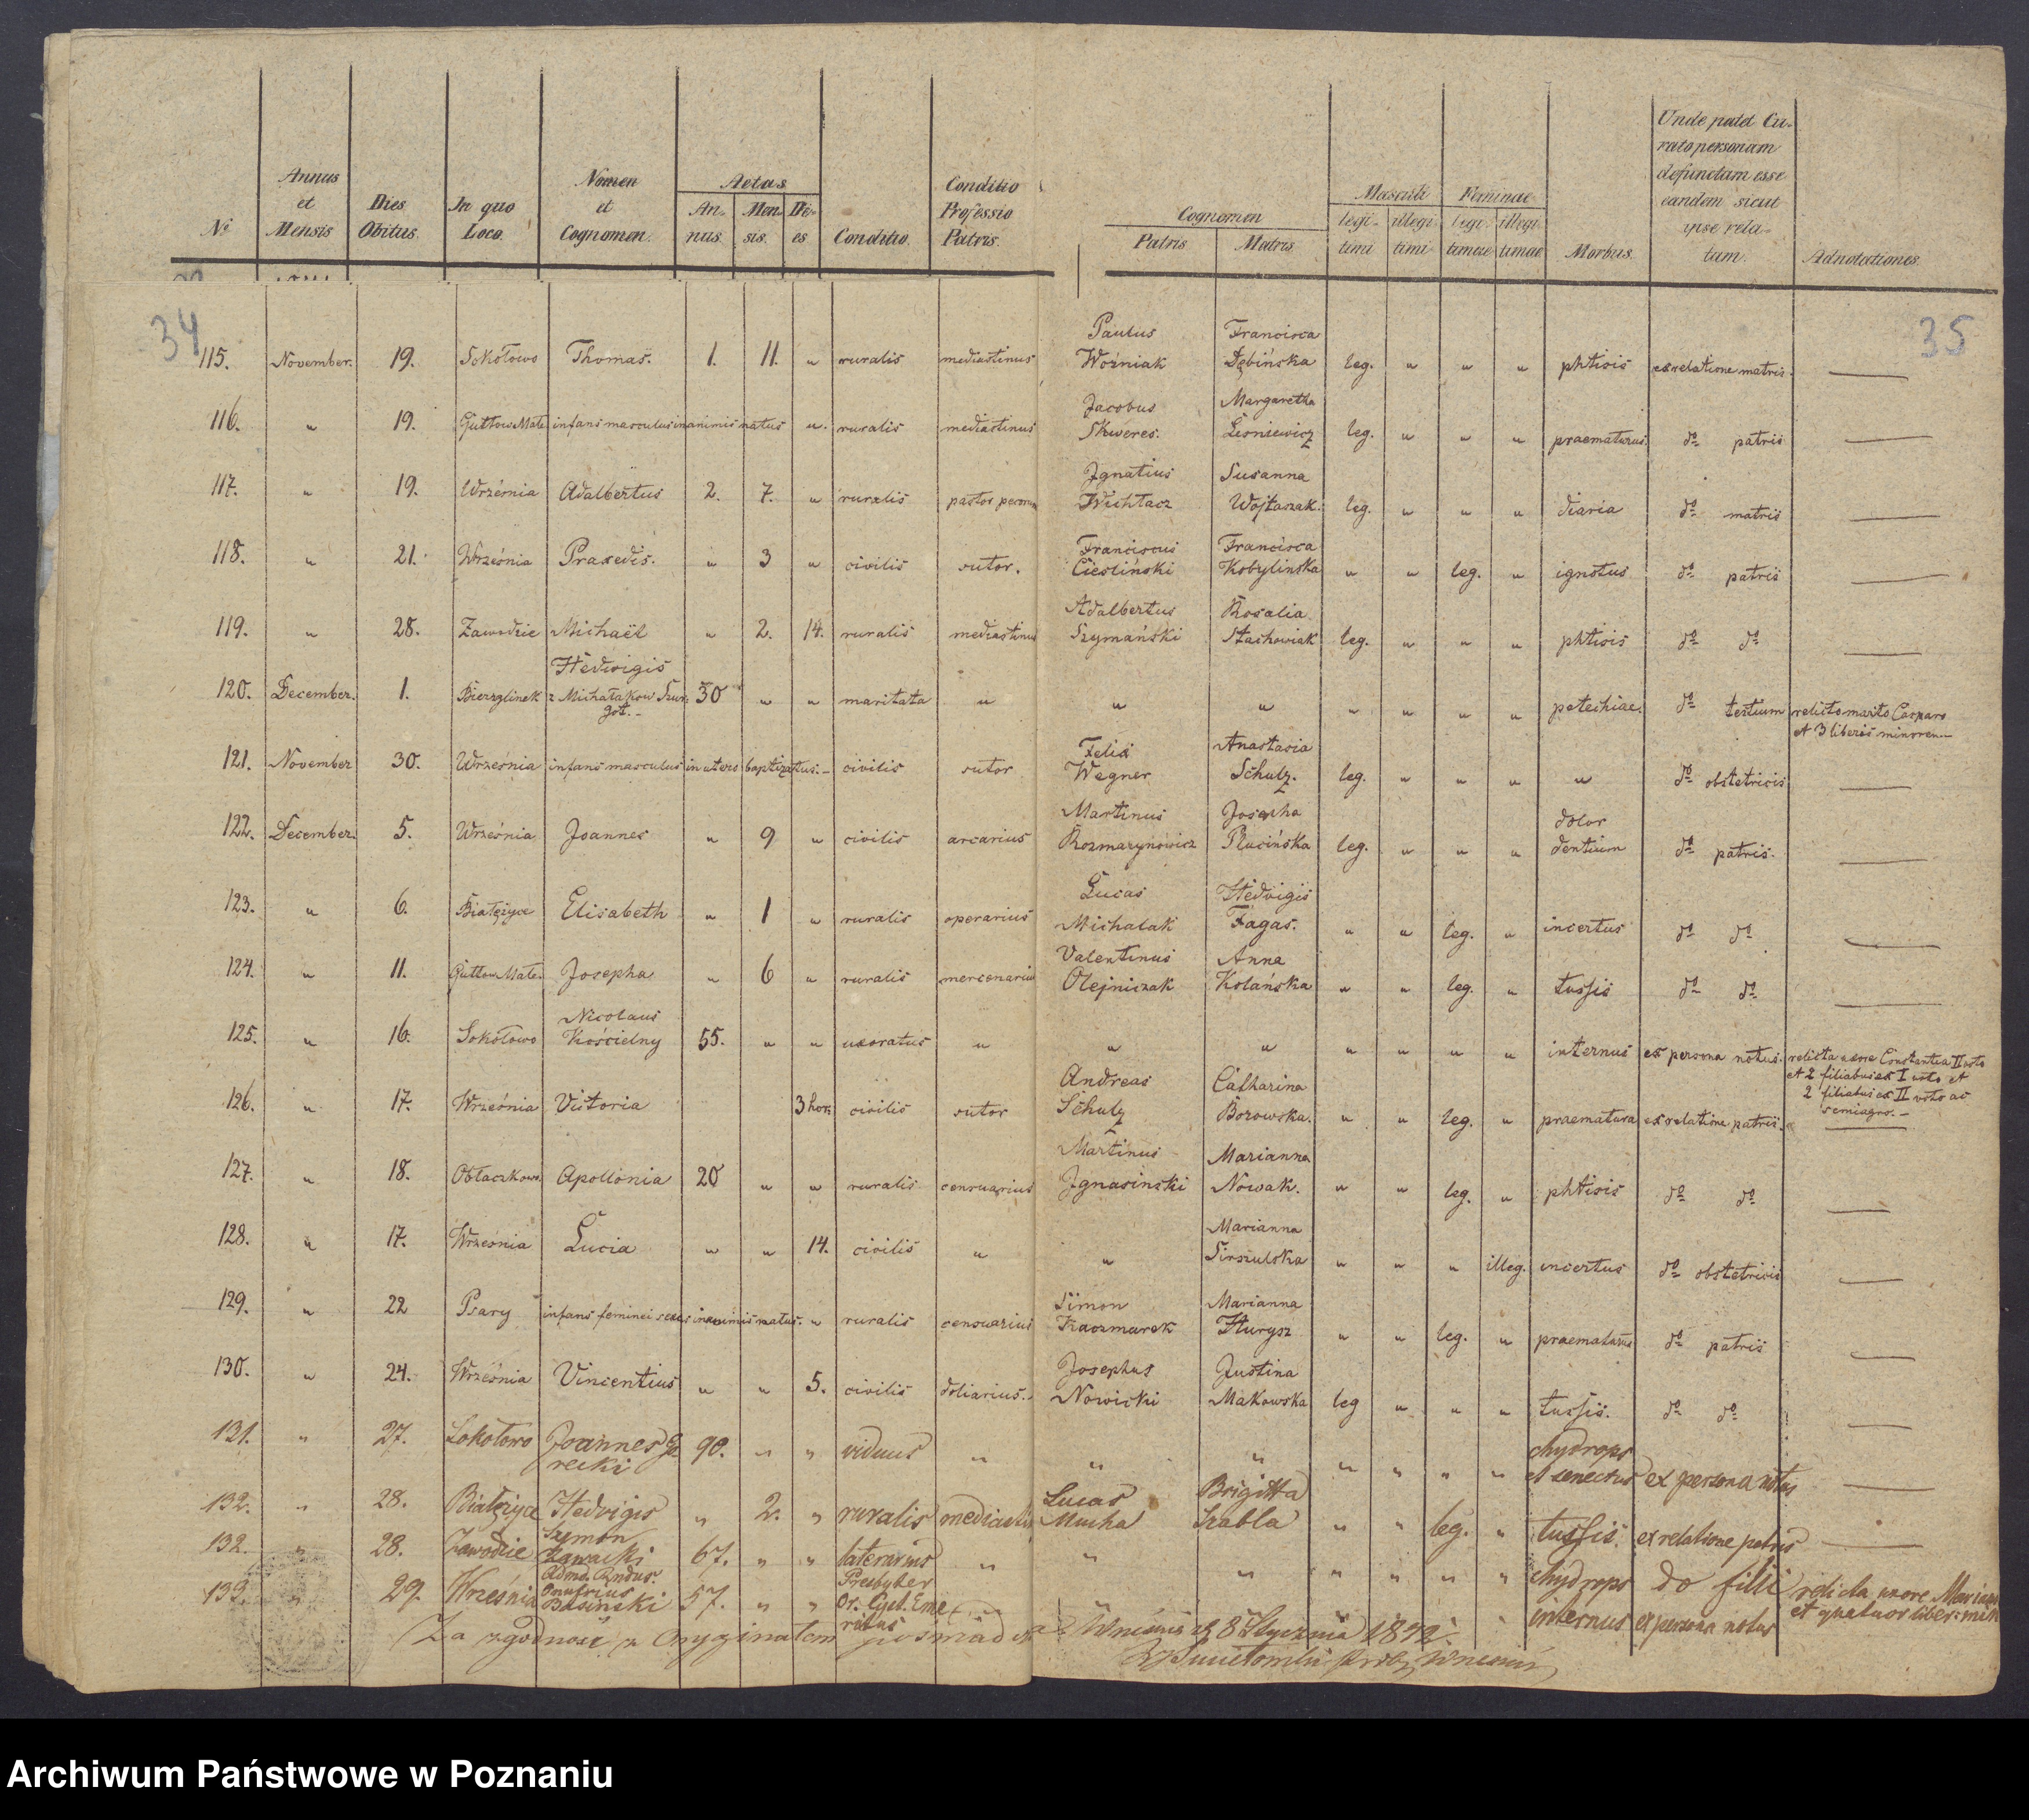 Annus et Mensis
Nomen et Cognomen.
Aetas
Conditio Professio Patris.
Unde patet Curato personam defunctam esse eandem sicut ipse relatum.
Nº Dies Obitus. In quo Loco. Annus. Mensis. Dies Conditio. Cognomen Patris Matris Masculi legitimi illegitimi Feminae legitimae illegitimae Morbus. Adnotationes.
34 35
Paulus Francisca
115. November. 19. Sokołowo Thomas. 1. 11. " ruralis mediastinus Woźniak Dębińska leg. " " " phtisis ex relatione matris. —
Jacobus Margaretha
116. " 19. Gutłow Małe infans masculus inanimis natus ". ruralis mediastinus Skweres. Leśniewicz leg. " " " praematurus. dº patris —
Ignatius Susanna
117. " 19. Września Adalbertus 2. 7. " ruralis pastor Wichłacz Wojtaszak. leg. " " " diaria dº matris —
Franciscus Francisca
118. " 21. Września Praxedis. " 3 " civilis sutor. Ciesliński Kobylinska " " leg. " ignotus dº patris —
Adalbertus Rosalia
119. " 28. Zawodzie Michaël " 2. 14. ruralis mediastinus Szymański Stachowiak leg. " " " phtisis dº dº —
Hedvigis
120. December. 1. Bierzglinek z Michałaków Szur- 30 " " maritata " " " " " " " petechiae. dº testium relicto marito Casparo
got. – et 3 liberis minoren.–
Felix Anastasia
121. November 30. Września infans masculus in utero baptizatus.– civilis sutor Wegner Schulz. leg. " " " " dº obstetricis —
Martinus Josepha dolor
122. December. 5. Września Joannes " 9 " civilis arcarius Rozmarynowicz Plucińska leg. " " " dentium dº patris. —
Lucas Hedvigis
123. " 6. Białężyce Elisabeth " 1 " ruralis operarius Michalak Fagas. " " leg. " incertus dº dº —
Valentinus Anna
124. " 11. Gutłow Małe. Josepha " 6 " ruralis mercenarius Olejniczak Kolańska " " leg. " tussis dº dº —
Nicolaus
125. " 16. Sokołowo Kościelny 55. " " uxoratus " " " " " " " internus ex persona notus. relicta uxore Constantia II voto
et 2 filiabus ex I voto et
2 filiabus ex II voto ac
semiagro.–
Andreas Catharina
126. " 17. Września Victoria 3 hor. civilis sutor Schulz Borowska. " " leg. " praematura ex relatione patris. —
Martinus Marianna
127. " 18. Obłaczkowo. Apollonia 20 " " ruralis censuarius Ignasinski Nowak. " " leg. " phtisis dº dº —
Marianna
128. " 17. Września Lucia " " 14. civilis " " " " " illeg. incertus dº obstetricis —
Simon Marianna
129. " 22 Psary infans feminei sexus inanimis natus. " ruralis censuarius Kaczmarek Hurysz " " leg. " praematurus dº patris —
Josephus Justina
130. " 24. Września Vincentius " " 5. civilis doliarius.– Nowicki Makowska leg " " " tussis. dº dº —
131. " 27. Sokołowo Joannes Go- 90. " " viduus " " " " " " " chydrops
recki et senectus ex persona notus —
Lucas Brigitta
132. " 28. Białężyce Hedvigis " 2. " ruralis mediastin Mucha Szabla " " leg. " tussis. ex relatione patris —
132. " 28. Zawodzie Szymon Zawacki 67. " " laterarius " " " " " " " chydrops do filii relicta uxore Marian
et quatuor liber: min
133. " 29. Września Adms. Rndus. Onufrius Basiński 57. " " Presbyter Or. Cyst. Eme- ritus " " internus ex persona notus
Za zgodność z oryginałem poświadcza Września d. 8 Stycznia
Archiwum Państwowe w Poznaniu